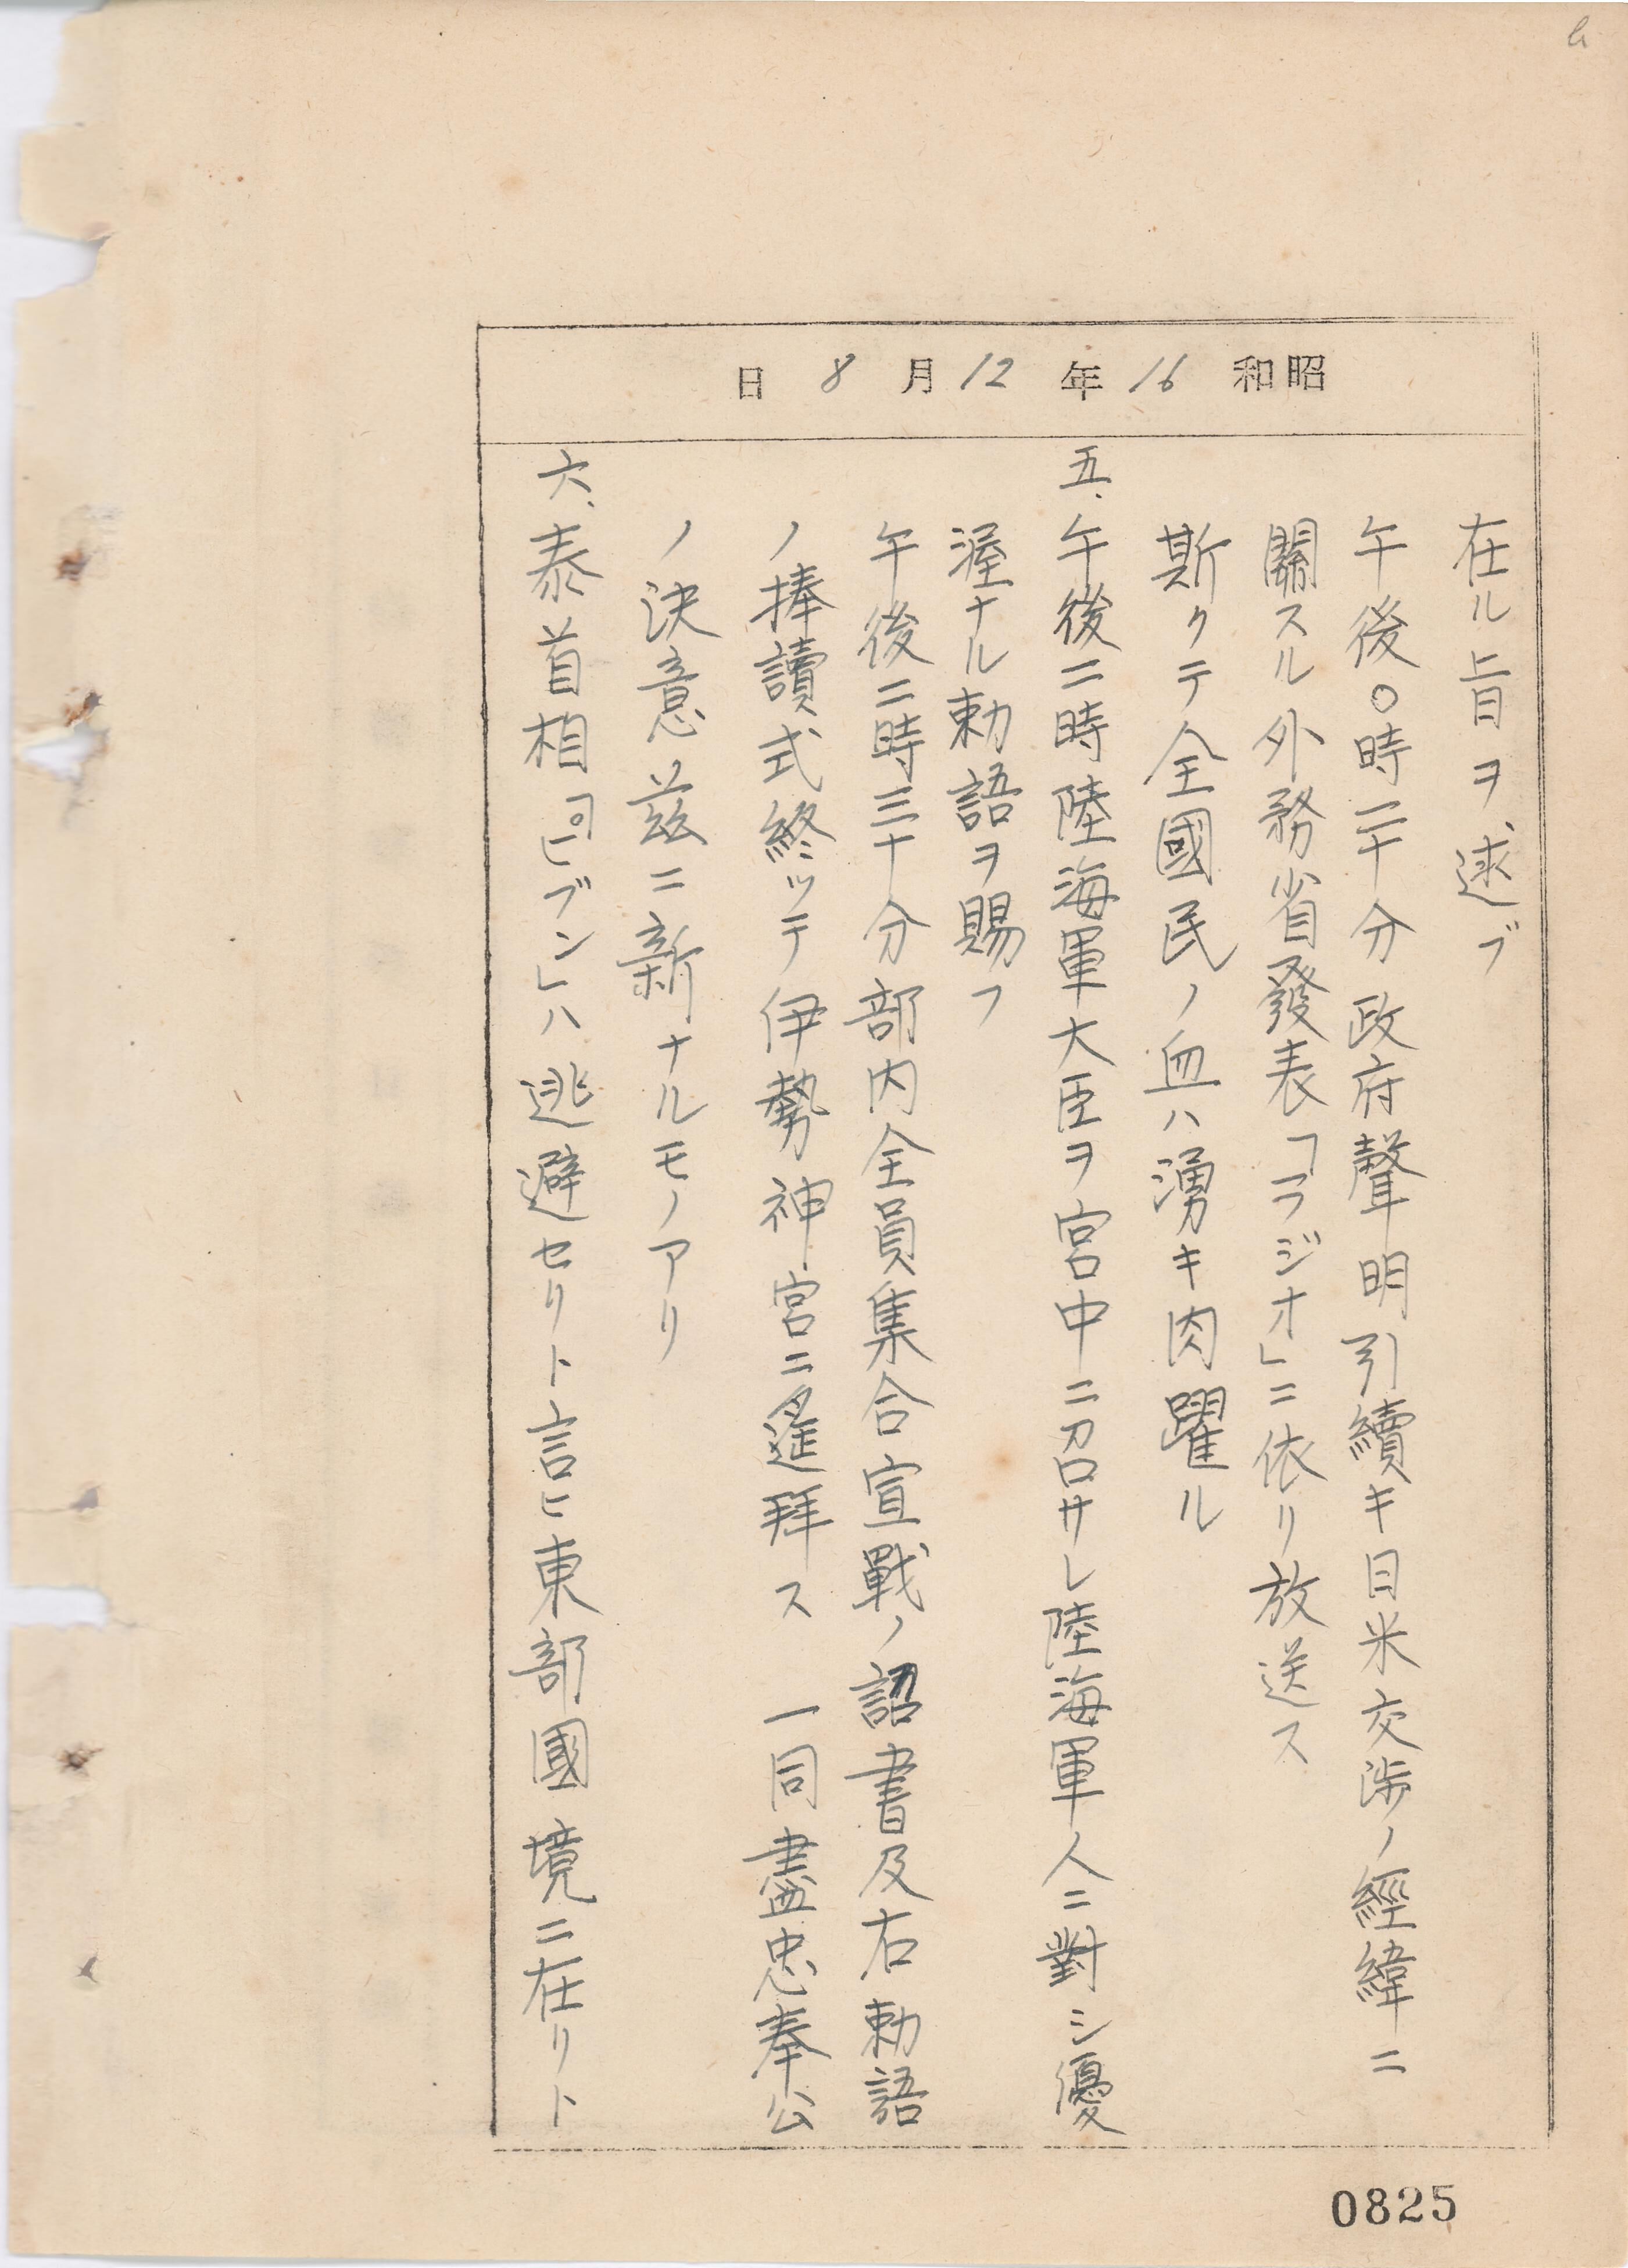 昭和16年12月8日
在ル旨ヲ述ブ
午後〇時二十分政府聲明引續キ日米交渉ノ經緯ニ
關スル外務省發表「ラジオ」ニ依リ放送ス
斯クテ全國民ノ血ハ湧キ肉躍ル
五、午後二時陸海軍大臣ヲ宮中ニ召サレ陸海軍人ニ對シ優
渥ナル勅語ヲ賜フ
午後二時三十分部内全員集合宣戰ノ詔書及右勅語
ノ捧讀式終ッテ伊勢神宮ニ遙拜ス 一同盡忠奉公
ノ決意茲ニ新ナルモノアリ
六、泰首相「ピブン」ハ逃避セリト言ヒ東部國境ニ在リト
0825